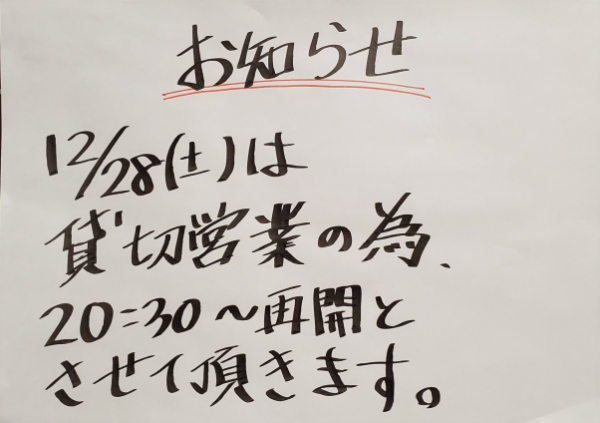 お知らせ
12/28(土)は
貸切営業の為、
20:30～再開と
させて頂きます。